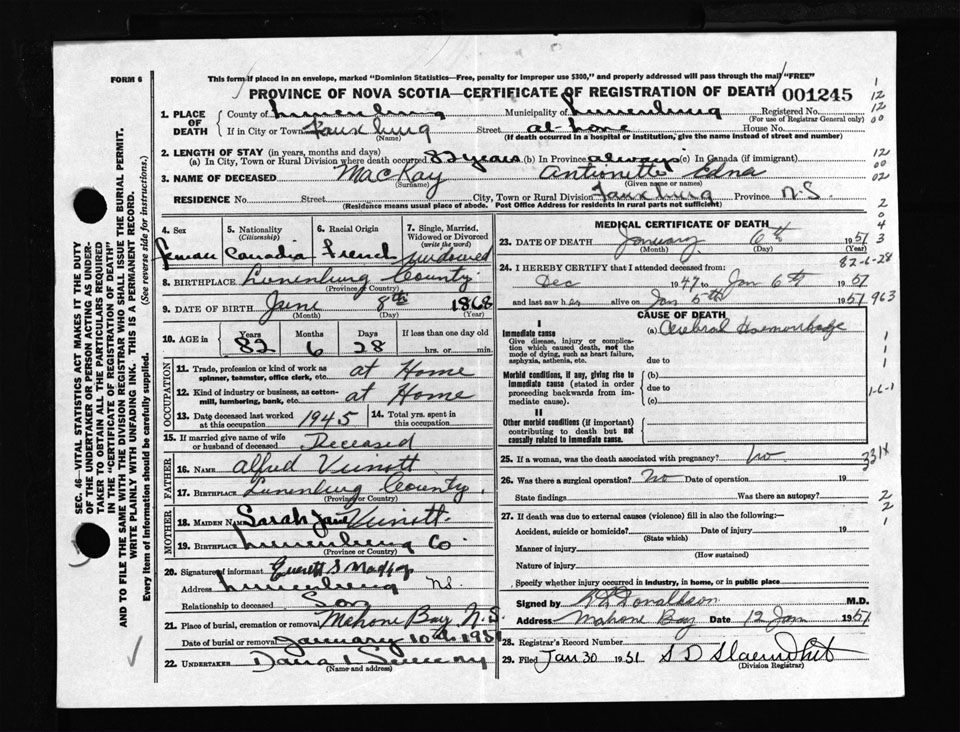 This form if placed in an envelope, marked "Dominion Statistics—Free, penalty for improper use $300," and properly addressed will pass through the mail "FREE"
FORM 6
PROVINCE OF NOVA SCOTIA—CERTIFICATE OF REGISTRATION OF DEATH 001245
1. PLACE OF DEATH County of Lunenburg Municipality of Lunenburg Registered No.
(For use of Registrar General only)
If in City or Town Fauxburg Street at home House No.
(Name) (If death occurred in a hospital or institution, give the name instead of street and number)
2. LENGTH OF STAY (in years, months and days)
(a) In City, Town or Rural Division where death occurred 82 years (b) In Province always (c) In Canada (if immigrant)
3. NAME OF DECEASED MacKay Antionette Edna
(Surname) (Given name or names)
RESIDENCE No. Street City, Town or Rural Division Fauxburg Province N.S
(Residence means usual place of abode. Post Office Address for residents in rural parts not sufficient)
4. Sex 5. Nationality (Citizenship) 6. Racial Origin 7. Single, Married, Widowed or Divorced (write the word)
Female Canadia French Widowed
8. BIRTHPLACE Lunenburg County
(Province or Country)
9. DATE OF BIRTH June 8th 1868
(Month) (Day) (Year)
10. AGE in Years Months Days If less than one day old
82 6 28 hrs. or min.
OCCUPATION
11. Trade, profession or kind of work as spinner, teamster, office clerk, etc. at Home
12. Kind of industry or business, as cotton-mill, lumbering, bank, etc. at Home
13. Date deceased last worked at this occupation 1945 14. Total yrs. spent in this occupation
15. If married give name of wife or husband of deceased Deceased
FATHER
16. NAME Alfred Veinott
17. BIRTHPLACE Lunenburg County
(Province or Country)
MOTHER
18. MAIDEN NAME Sarah Jane Veinott
19. BIRTHPLACE Lunenburg Co
(Province or Country)
20. Signature of informant Everett S
Address Lunenburg NS.
Relationship to deceased Son
21. Place of burial, cremation or removal Mahone Bay N.S.
Date of burial or removal January 10th 1951
22. UNDERTAKER
(Name and address)
MEDICAL CERTIFICATE OF DEATH
23. DATE OF DEATH January 6th 1951
(Month) (Day) (Year)
82-6-28
24. I HEREBY CERTIFY that I attended deceased from:
Dec 1947 to Jan 6th 1951
and last saw her alive on Jan 5th 1951 963
CAUSE OF DEATH
I
Immediate cause (a) Cerebral Haemorrhadge
Give disease, injury or complication which caused death, not the mode of dying, such as heart failure, asphyxia, asthenia, etc.
due to
Morbid conditions, if any, giving rise to immediate cause (stated in order proceeding backwards from immediate cause).
(b)
due to
(c)
II
Other morbid conditions (if important) contributing to death but not causally related to immediate cause.
25. If a woman, was the death associated with pregnancy? No
331X
26. Was there a surgical operation? No Date of operation 19
State findings Was there an autopsy?
27. If death was due to external causes (violence) fill in also the following:—
Accident, suicide or homicide? Date of injury 19
(State which)
Manner of injury
(How sustained)
Nature of injury
Specify whether injury occurred in industry, in home, or in public place
Signed by Donaldson M.D.
Address Mahone Bay Date 12 Jan 1951
28. Registrar's Record Number
29. Filed Jan. 30 1951 S D
(Division Registrar)
SEC. 46—VITAL STATISTICS ACT MAKES IT THE DUTY
OF THE UNDERTAKER OR PERSON ACTING AS UNDER-
TAKER TO OBTAIN ALL THE PARTICULARS REQUIRED
IN THE "CERTIFICATE OF REGISTRATION OF DEATH"
AND TO FILE THE SAME WITH THE DIVISION REGISTRAR WHO SHALL ISSUE THE BURIAL PERMIT.
WRITE PLAINLY WITH UNFADING INK. THIS IS A PERMANENT RECORD.
Every item of information should be carefully supplied. (See reverse side for instructions.)